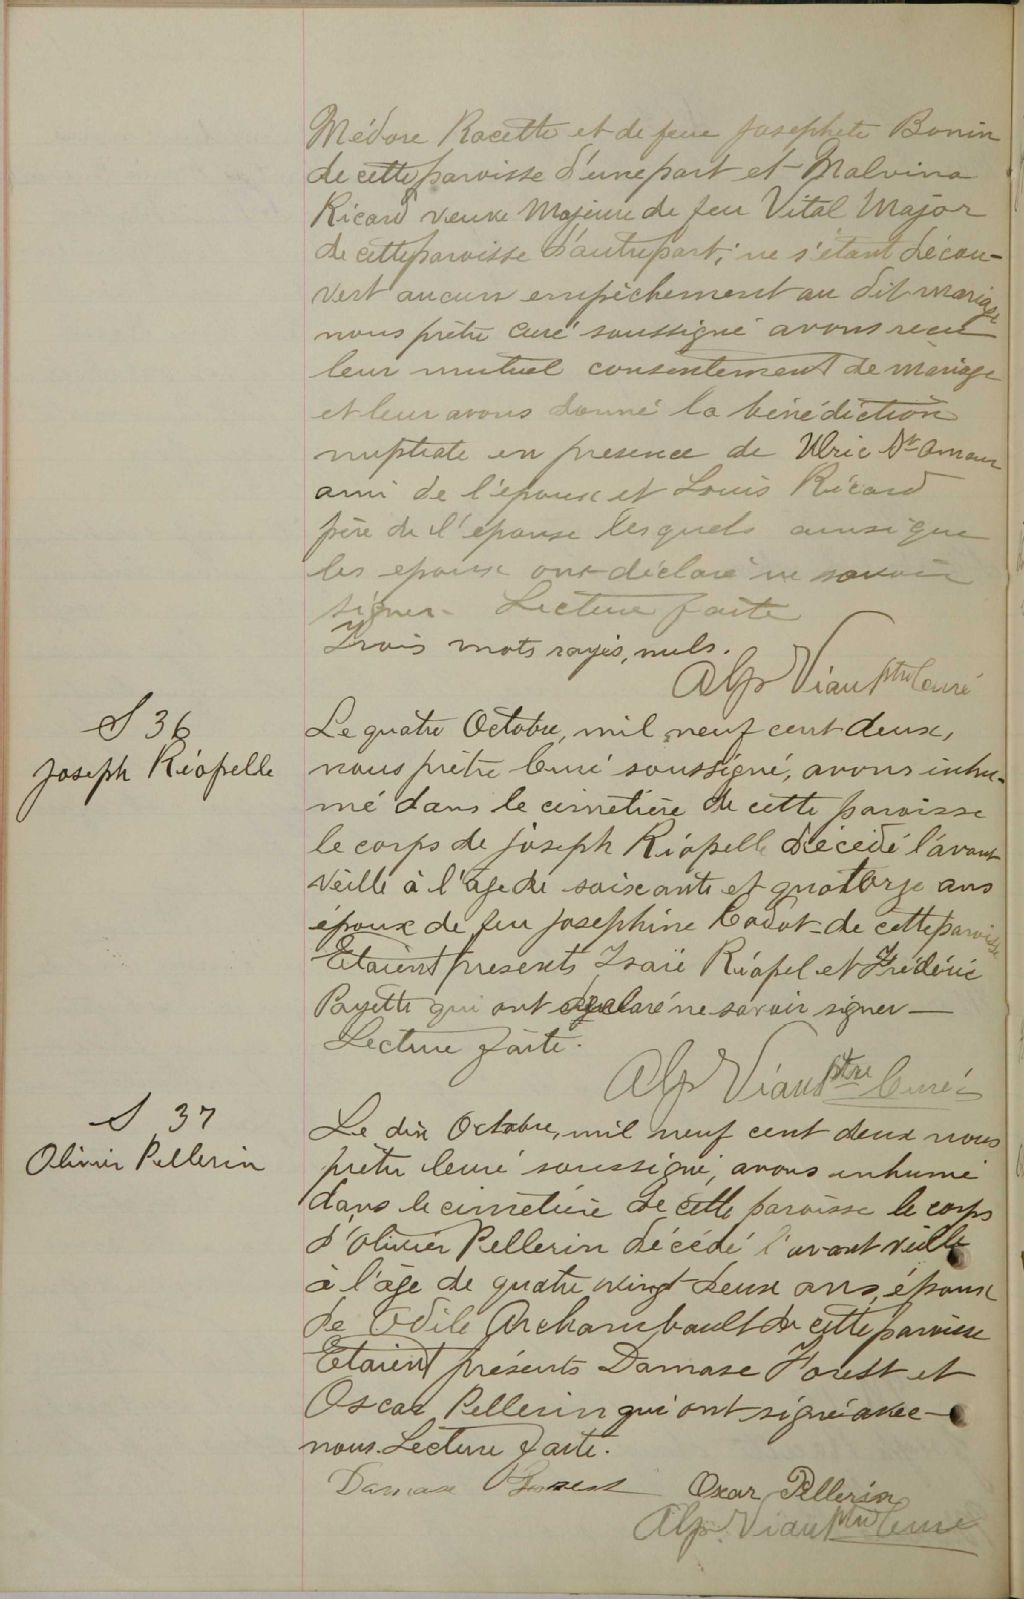 Médore Racette et de feue Josephete Bonin
de cette paroisse d'une part et Malvina
Ricard veuve Majeure de feu Vital Major
de cette paroisse d'autre part; ne s'étant décou-
vert aucun empêchement au dit mariage
nous prêtre curé soussigné avons reçu
leur mutuel consentement de mariage
et leur avons donné la bénédiction
nuptiale en presence de Ulric St-Amour
ami de l'époux et Louis Ricard
père de l'epouse lesquels ainsi que
les epoux ont déclaré ne savoir
signer - Lecture faite
Trois mots rayés, nuls.
Alp Viau ptre Curé
S 36
Joseph Riopelle
Le quatre Octobre, mil neuf cent deux,
nous prêtre Curé soussigné, avons inhu-
mé dans le cimetière de cette paroisse
le corps de Joseph Riopelle décédé l'avant
veille à l'age de soixante et quatorze ans
époux de feu Josephine Cadot - de cette paroisse
Etaient présents Isaïe Riopel et Frédéric
Payette qui ont déclaré ne savoir signer —
Lecture faite.
Alp Viau ptre Curé
S 37
Olivier Pellerin
Le dix Octobre, mil neuf cent deux nous
prêtre Curé soussigné, avons inhumé
dans le cimetière de cette paroisse le corps
d'Olivier Pellerin décédé l'avant veille
à l'âge de quatre vingt deux ans, époux
de Odile Archambault de cette paroisse
Etaient présents Damase Forest et
Oscar Pellerin qui ont signé avec —
nous. Lecture faite.
Damase Forest Oscar Pellerin
Alp. Viau ptre Curé